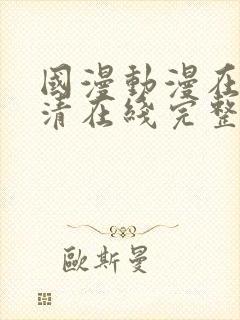 國漫動漫在
清在綫完整
歐斯曼